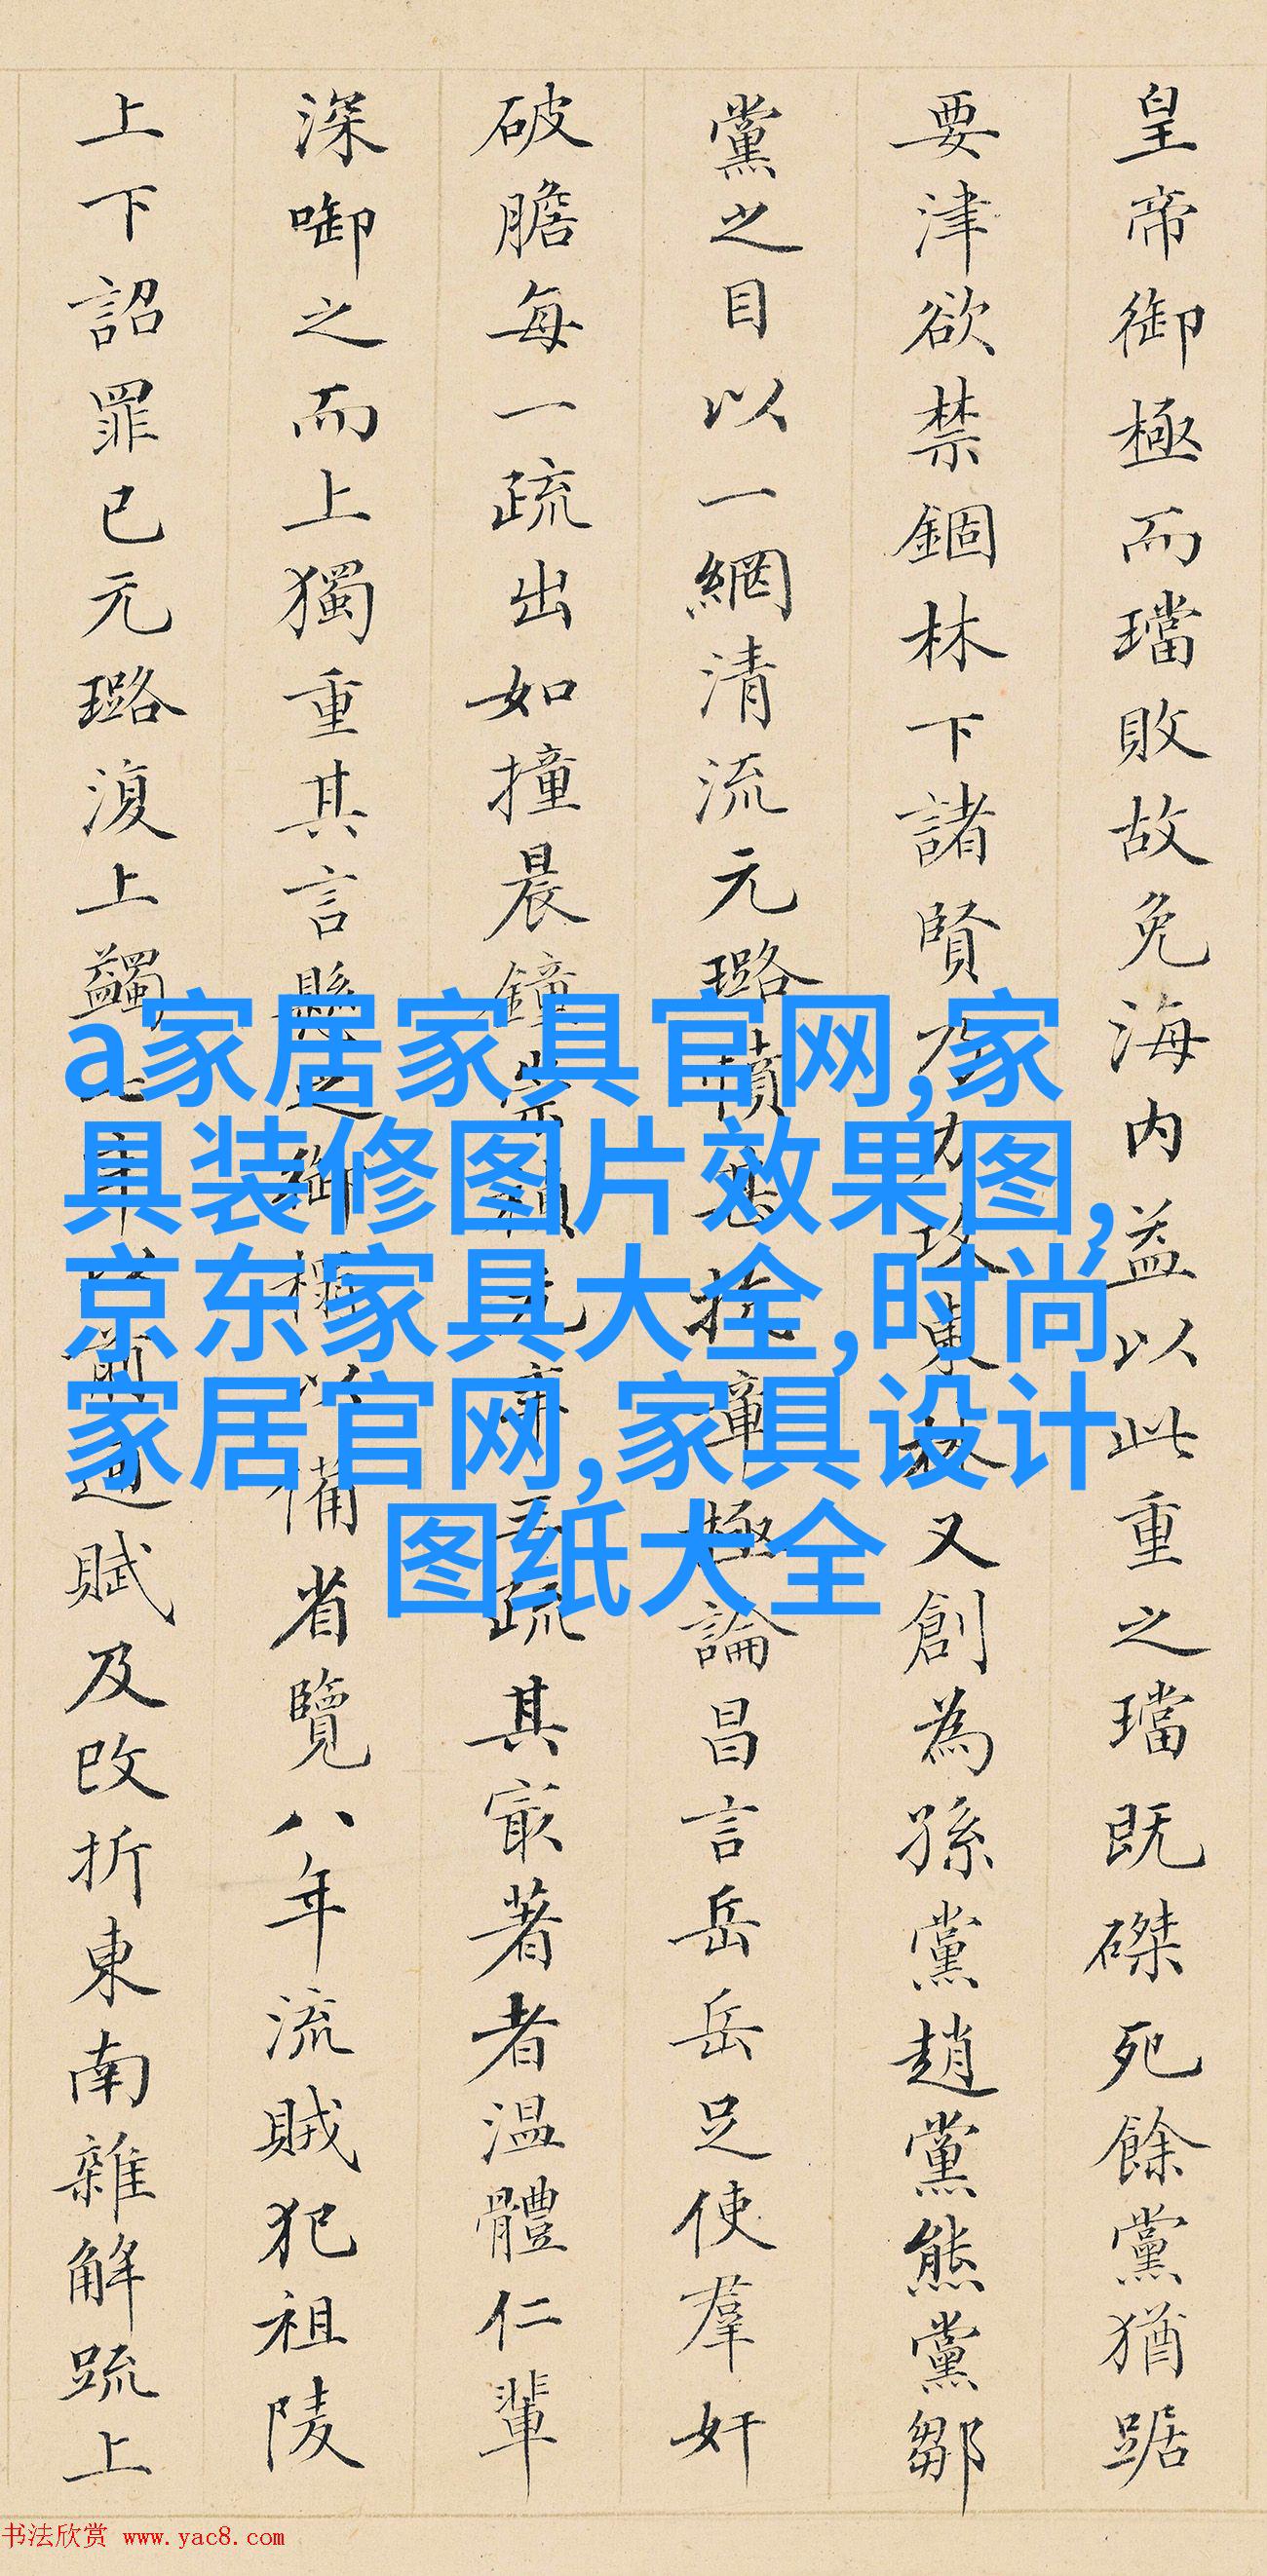 皇帝御極而璫敗故免海內益以此重之璫既磔死餘黨猶踞
要津欲禁錮林下諸賢乃力攻東林又創為孫黨趙黨熊黨鄒
黨之目以一網清流元璐憤甚抗章極論昌言岳岳足使羣奸
破膽每一疏出如撞晨鐘崇禎元年三疏其㝡著者溫體仁輩
深啣之而上獨重其言縣之御以備省覽八年流賊犯祖陵
上下詔罪已元璐復上蠲七年以前逋賦及改折東南雜解疏上
a家居家具官网,家
具装修图片效果图,
京东家具大全,时尚
家居官网,家具设计
图纸大全
书法欣赏 www.yac8.com